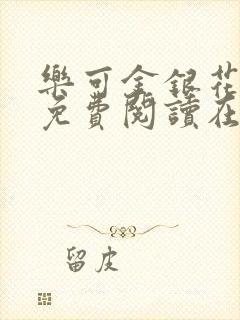 樂可金銀花
免費閱讀在
留皮